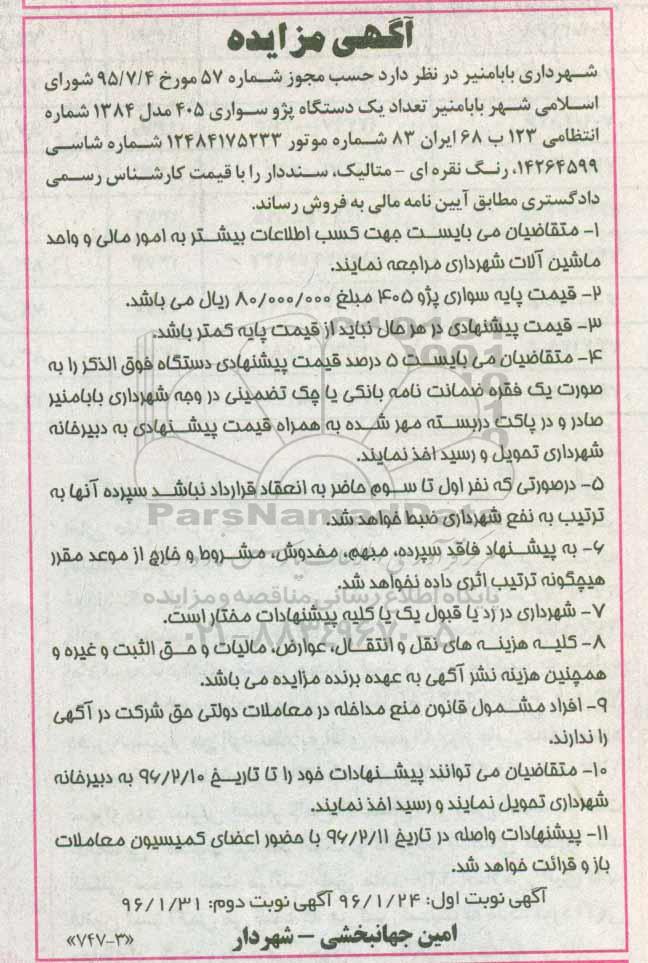 آگهی مزایده
شهرداری بابامنیر در نظر دارد حسب مجوز شماره ۵۷ مورخ ۹۵/۷/۴ شورای
اسلامی شهر بابامنیر تعداد یک دستگاه پژو سواری ۴۰۵ مدل ۱۳۸۴ شماره
انتظامی ۱۲۳ ب ۶۸ ایران ۸۳ شماره موتور ۱۲۴۸۴۱۷۵۲۳۳ شماره شاسی
۱۴۲۶۴۵۹۹، رنگ نقره ای - متالیک، سنددار را با قیمت کارشناس رسمی
دادگستری مطابق آیین نامه مالی به فروش رساند.
۱- متقاضیان می بایست جهت کسب اطلاعات بیشتر به امور مالی و واحد
ماشین آلات شهرداری مراجعه نمایند.
۲- قیمت پایه سواری پژو ۴۰۵ مبلغ ۸۰/۰۰۰/۰۰۰ ریال می باشد.
۳- قیمت پیشنهادی در هر حال نباید از قیمت پایه کمتر باشد.
۴- متقاضیان می بایست ۵ درصد قیمت پیشنهادی دستگاه فوق الذکر را به
صورت یک فقره ضمانت نامه بانکی یا چک تضمینی در وجه شهرداری بابامنیر
صادر و در پاکت دربسته مهر شده به همراه قیمت پیشنهادی به دبیرخانه
شهرداری تحویل و رسید اخذ نمایند.
۵- درصورتی که نفر اول تا سوم حاضر به انعقاد قرارداد نباشد سپرده آنها به
ترتیب به نفع شهرداری ضبط خواهد شد.
۶- به پیشنهاد فاقد سپرده، مبهم، مخدوش، مشروط و خارج از موعد مقرر
هیچگونه ترتیب اثری داده نخواهد شد.
۷- شهرداری در رد یا قبول یک یا کلیه پیشنهادات مختار است.
۸- کلیه هزینه های نقل و انتقال، عوارض، مالیات و حق الثبت و غیره و
همچنین هزینه نشر آگهی به عهده برنده مزایده می باشد.
۹- افراد مشمول قانون منع مداخله در معاملات دولتی حق شرکت در آگهی
را ندارند.
۱۰- متقاضیان می توانند پیشنهادات خود را تا تاریخ ۹۶/۲/۱۰ به دبیرخانه
شهرداری تحویل نمایند و رسید اخذ نمایند.
۱۱- پیشنهادات واصله در تاریخ ۹۶/۲/۱۱ با حضور اعضای کمیسیون معاملات
باز و قرائت خواهد شد.
آگهی نوبت اول: ۹۶/۱/۲۴ آگهی نوبت دوم: ۹۶/۱/۳۱
امین جهانبخشی - شهردار
«۷۴۷-۳»
ParsNamadData
پایگاه اطلاع رسانی مناقصه و مزایده
۰۲۱-۸۸۳۴۹۶۷۰-۵